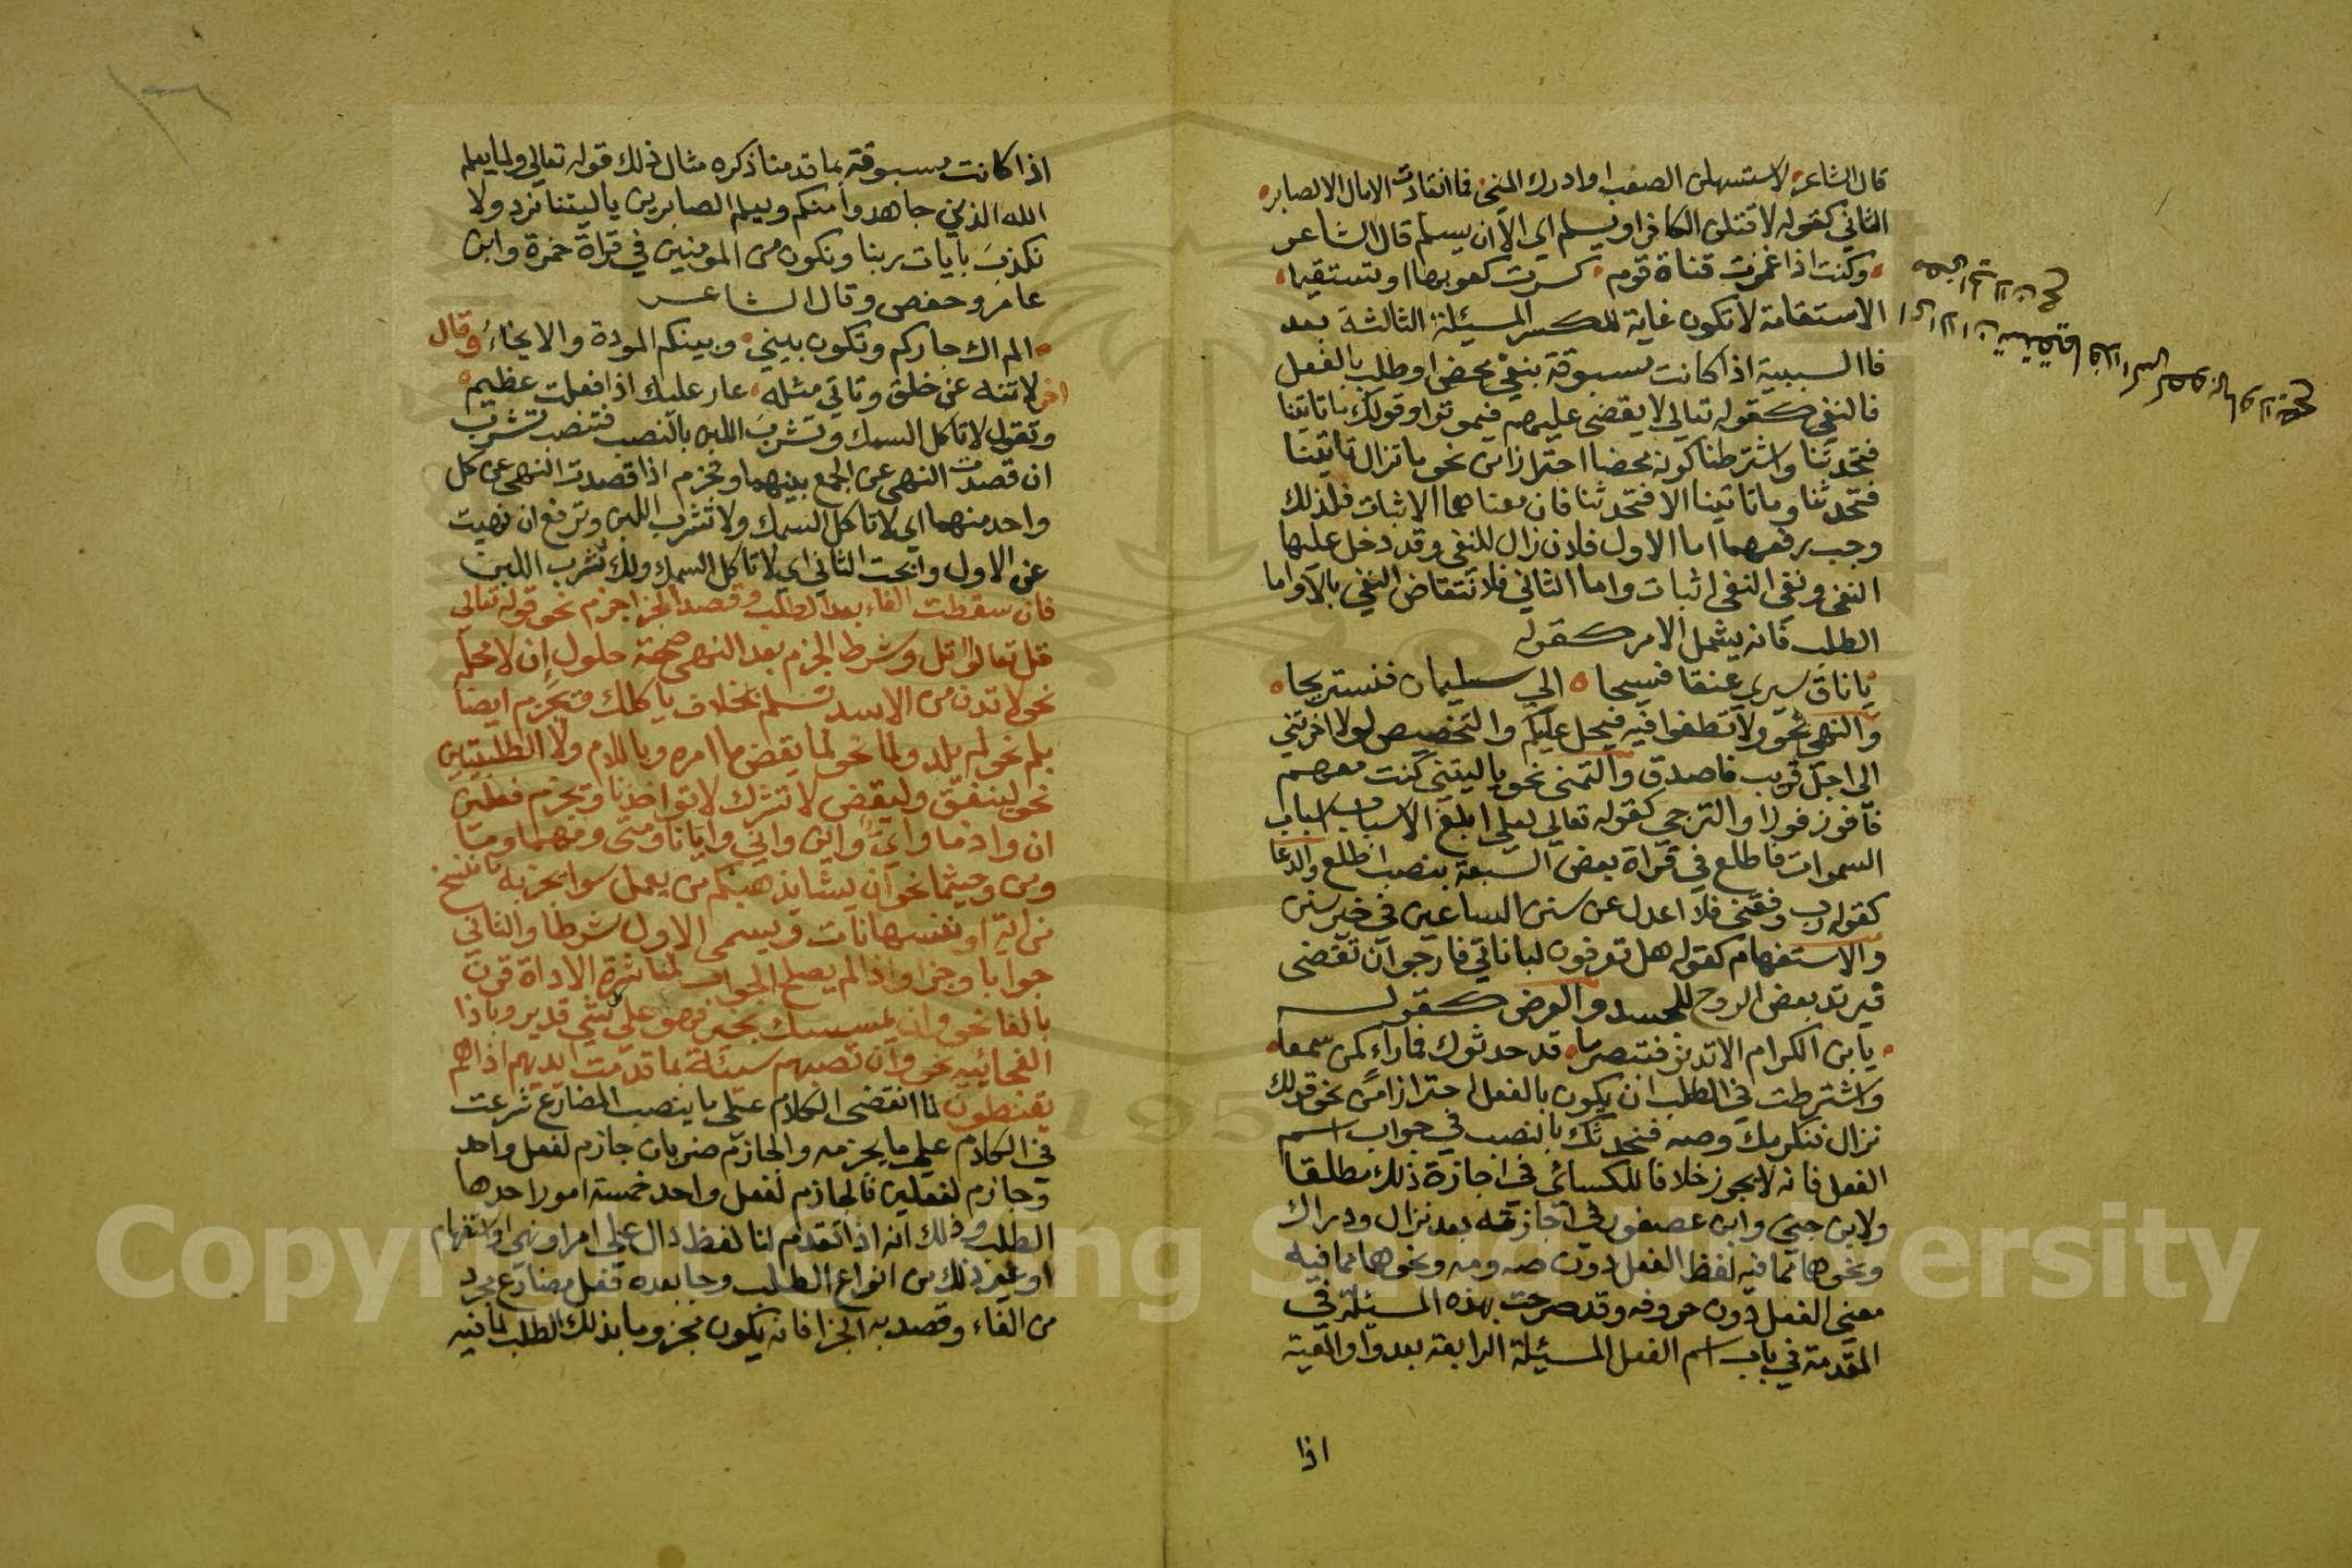 قال الشاعر لاستسهلن الصعب او ادرك المنى فما انقادت الامال الا لصابر
الثاني كقوله لاقتلن الكافر او يسلم اي الا ان يسلم قال الشاعر
وكنت اذا غمزت قناة قوم كسرت كعوبها او تستقيما
الاستقامة لا تكون غاية للكسر المسئلة الثالثة بعد
فا السببية اذا كانت مسبوقة بنفي محض او طلب بالفعل
فالنفي كقوله تعالى لا يقضى عليهم فيموتوا وقولك ما تاتينا
فتحدثنا واشترطنا كونه محضا احترازا من نحو ما تزال تاتينا
فتحدثنا وما تاتينا الا فتحدثنا فان معناهما الاثبات فلذلك
وجب رفعهما اما الاول فلان زال للنفي وقد دخل عليها
النفي ونفي النفي اثبات واما الثاني فلانتقاض النفي بالا واما
الطلب فانه يشمل الامر كقوله
يا ناق سيري عنقا فسيحا الى سليمان فنستريحا
والنهي نحو ولا تطغوا فيه فيحل عليكم والتحضيض لولا اخرتني
الى اجل قريب فاصدق والتمني نحو يا ليتني كنت معهم
فافوز فوزا والترجي كقوله تعالى لعلي ابلغ الاسباب اسباب
السموات فاطلع في قراة بعض السبعة بنصب اطلع والدعا
كقوله رب وفقني فلا اعدل عن سنن الساعين في خير سنن
والاستفهام كقوله هل تعرفون لباناتي فارجو ان تقضى
فيرتد بعض الروح للجسد والعرض كقوله
يا بن الكرام الا تدنو فتبصر ما قد حدثوك فما راء كمن سمعا
واشترطت في الطلب ان يكون بالفعل احترازا من نحو قولك
نزال فنكرمك وصه فنحدثك بالنصب في جواب اسم
الفعل فانه لا يجوز خلافا للكسائي في اجازة ذلك مطلقا
ولابن جني وابن عصفور في اجازته بعد نزال ودراك
ونحوهما مما فيه لفظ الفعل دون صه ومه ونحوهما مما فيه
معنى الفعل دون حروفه وقد صرحت بهذه المسئلة في
المقدمة في باب اسم الفعل المسئلة الرابعة بعد واو المعية
اذا
اذا كانت مسبوقة بما قدمنا ذكره مثال ذلك قوله تعالى ولما يعلم
الله الذين جاهدوا منكم ويعلم الصابرين يا ليتنا نرد ولا
نكذب بايات ربنا ونكون من المومنين في قراة حمزة وابن
عامر وحفص وقال الشاعر
الم اك جاركم وتكون بيني وبينكم المودة والاخاء وقال
اخر لا تنه عن خلق وتاتي مثله عار عليك اذا فعلت عظيم
وتقول لا تاكل السمك وتشرب اللبن بالنصب فتنصب تشرب
ان قصدت النهي عن الجمع بينهما وتجزم اذا قصدت النهي عن كل
واحد منهما اي لا تاكل السمك ولا تشرب اللبن وترفع ان نهيت
عن الاول وابحت الثاني اي لا تاكل السمك ولك تشرب اللبن
فان سقطت الفاء بعد الطلب وقصد الجزا جزم نحو قوله تعالى
قل تعالوا اتل وشرط الجزم بعد النهي صحة حلول ان لا محله
نحو لا تدن من الاسد تسلم بخلاف ياكلك ويجزم ايضا
بلم نحو لم يلد ولما نحو لما يقض ما امره وباللام ولا الطلبيتين
نحو لينفق وليقض لا تشرك لا تواخذنا وتجزم فعلين
ان واذما واي واين واني وايانا ومتى ومهما وما
ومن وحيثما نحو ان يشا يذهبكم من يعمل سوا يجز به ما ننسخ
من اية او ننسها نات ويسمى الاول شرطا والثاني
جوابا وجزا واذا لم يصلح الجواب لمباشرة الاداة قرن
بالفا نحو وان يمسسك بخير فهو على كل شي قدير وباذا
الفجائيه نحو وان تصبهم سيئة بما قدمت ايديهم اذا هم
يقنطون لما انقضى الكلام على ما ينصب المضارع شرعت
في الكلام على ما يجزمه والجازم ضربان جازم لفعل واحد
وجازم لفعلين فالجازم لفعل واحد خمسة امور احدها
الطلب وذلك انه اذا تقدم لنا لفظ دال على امر او نهي او استفهام
او غير ذلك من انواع الطلب وجا بعده فعل مضارع مجرد
من الفاء وقصد به الجزا فانه يكون مجزوما بذلك الطلب لما فيه
Copyright © King Saud University
1957